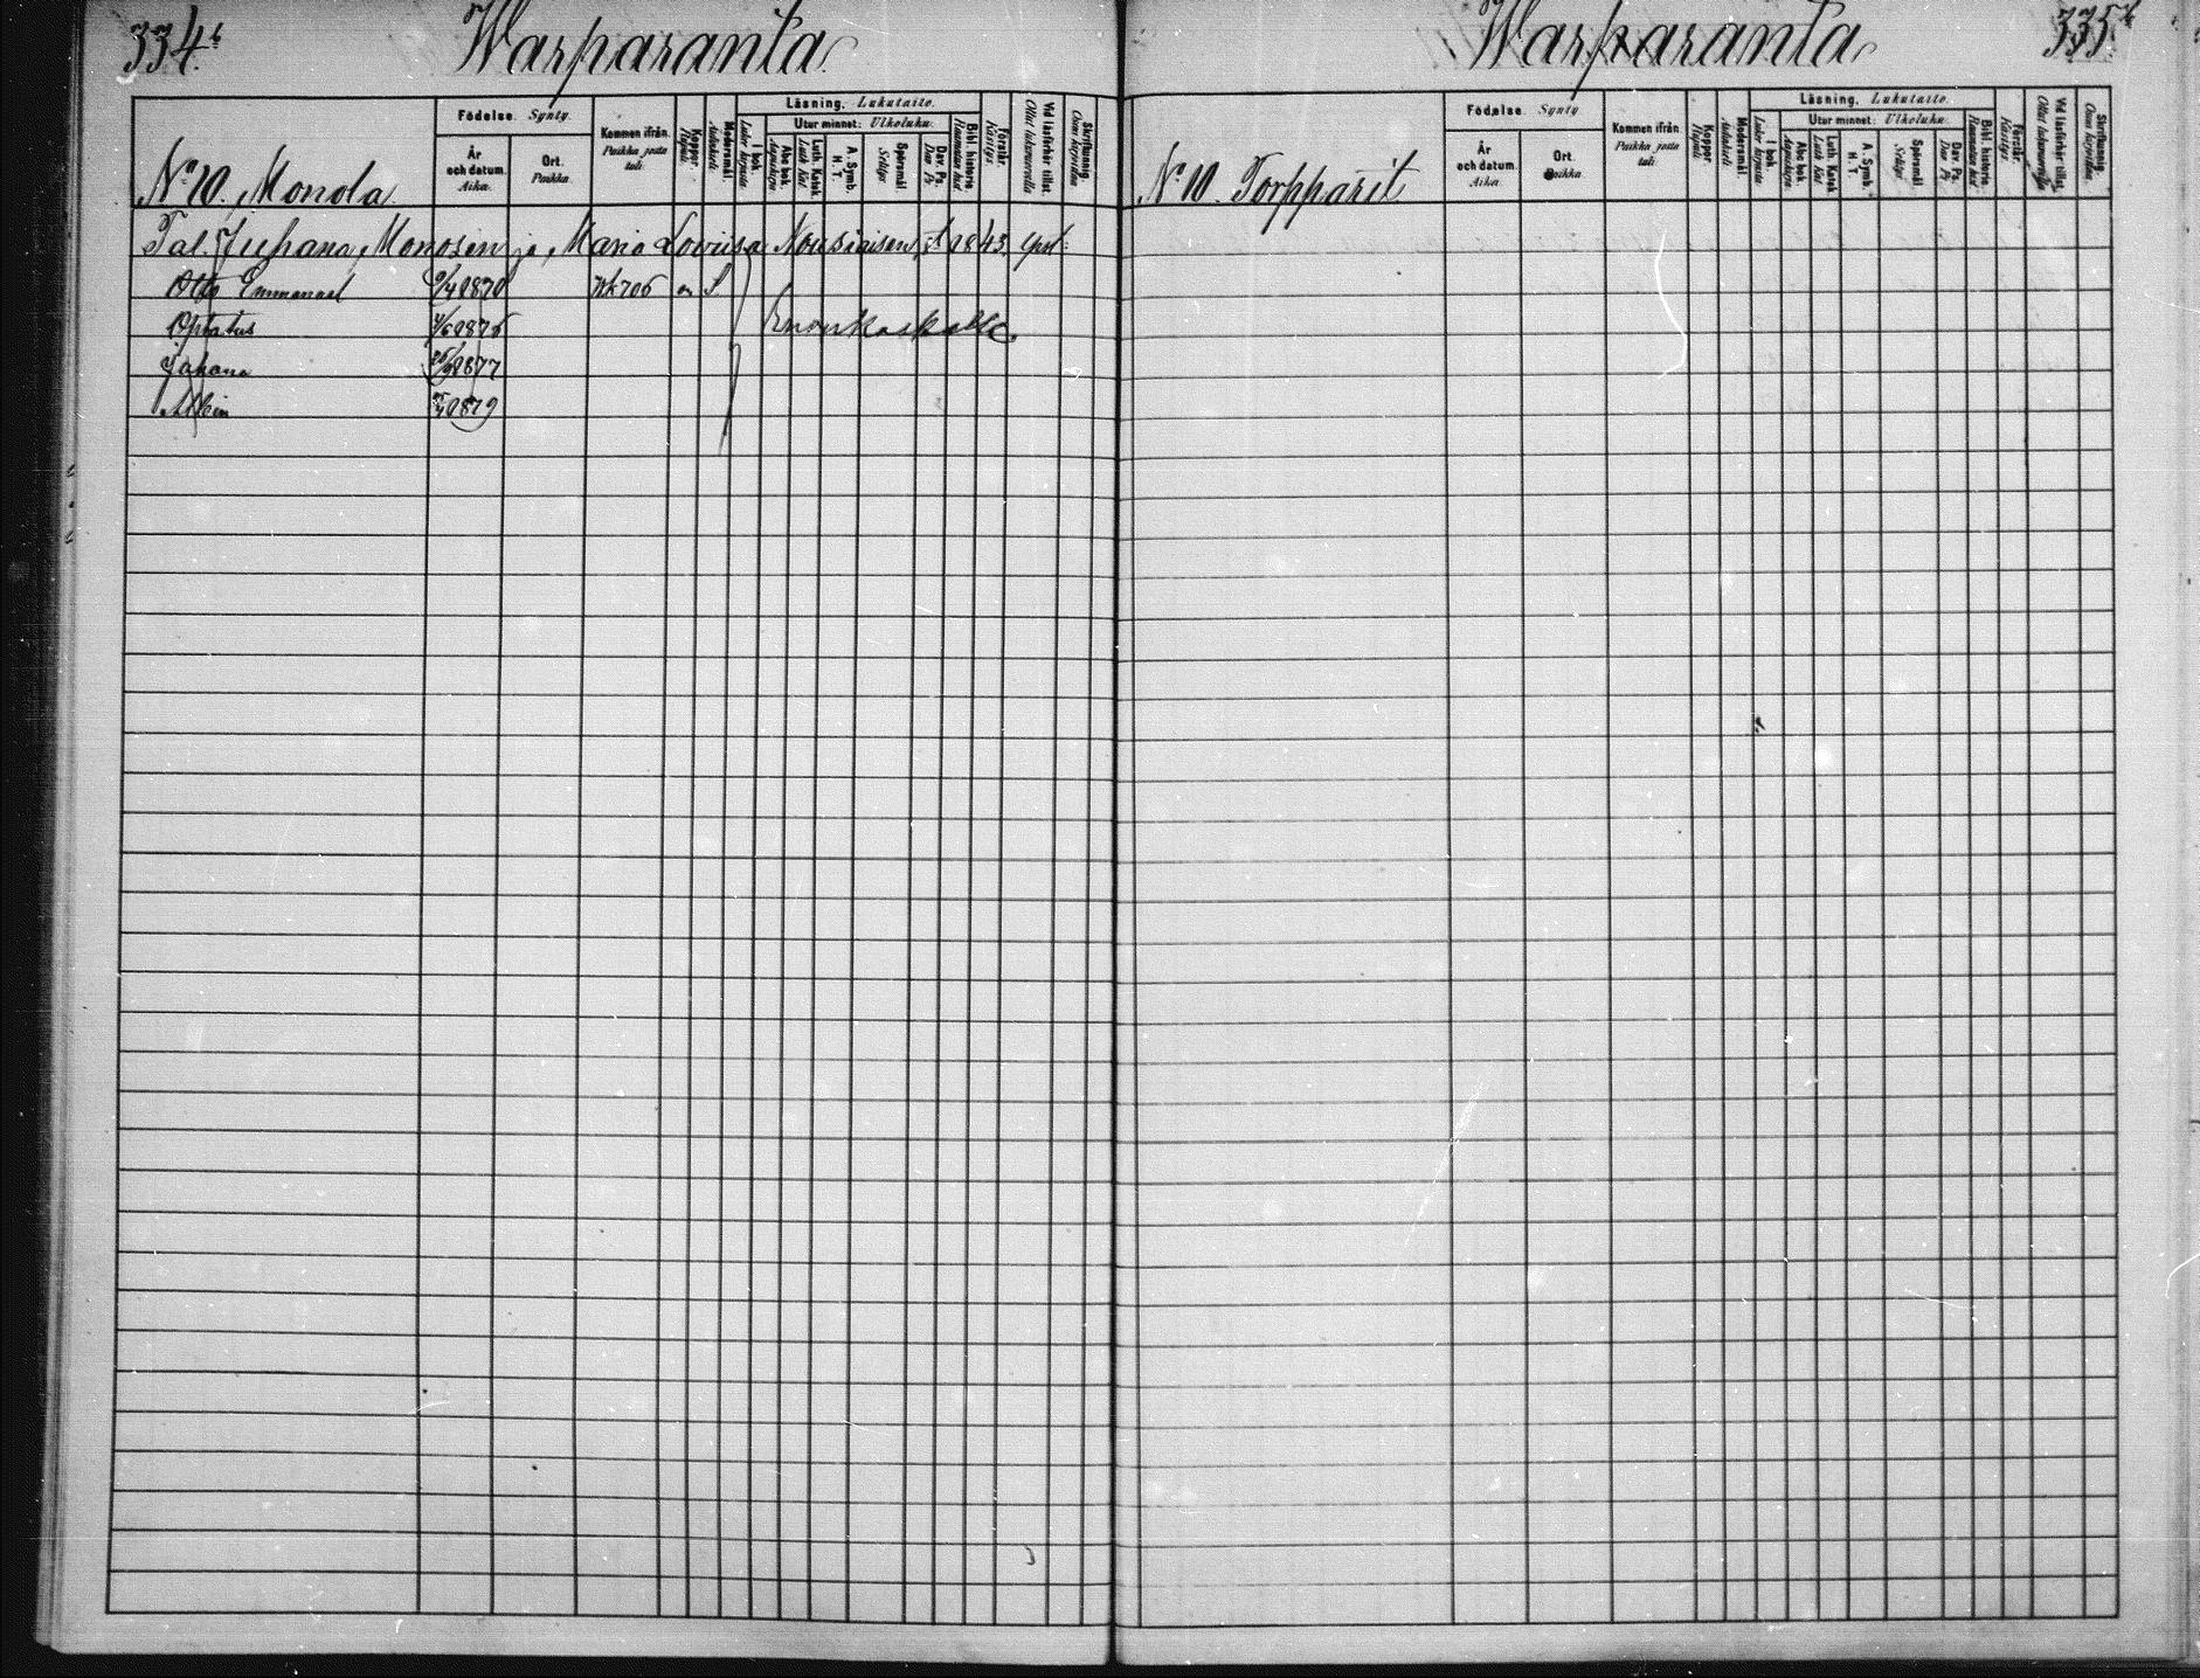 334b Warparanta
No 10. Monola
Födelse. Synty
År och datum. Aika.
Ort. Paikka
Kommen ifrån. Paikka josta tuli.
Koppor. Rupuli
Modersmål. Äidinkieli
Läsning. Lukutaito.
I bok. Lukee kirjasta
Utur minnet: Ulkoluku.
Abc bok. Aapiskirja
Luth. Katek. Luth Kat
A. Symb. H. T.
Spörsmål. Selitys
Dav. Ps. Dav Ps
Bibl. historia. Raamatun hist
Förstår. Käsitys
Vid läsförhör tillst. Ollut lukuvuorolla
Skriftkunnig. Osaa kirjoittaa
Tal. Juhana Monosen ja Maria Loviisa Nousiaisen s. 1843
Otto Emmanuel 9/4 1870 706 S.
Optatus 1876 Enonkoskelle
Juhana 1877
Albin 1879
Warparanta 335b
No 10. Torpparit
Födelse. Synty
År och datum. Aika.
Ort. Paikka
Kommen ifrån. Paikka josta tuli.
Koppor. Rupuli
Modersmål. Äidinkieli
Läsning. Lukutaito.
I bok. Lukee kirjasta
Utur minnet: Ulkoluku.
Abc bok. Aapiskirja
Luth. Katek. Luth Kat
A. Symb. H. T.
Spörsmål. Selitys
Dav. Ps. Dav Ps
Bibl. historia. Raamatun hist
Förstår. Käsitys
Vid läsförhör tillst. Ollut lukuvuorolla
Skriftkunnig. Osaa kirjoittaa